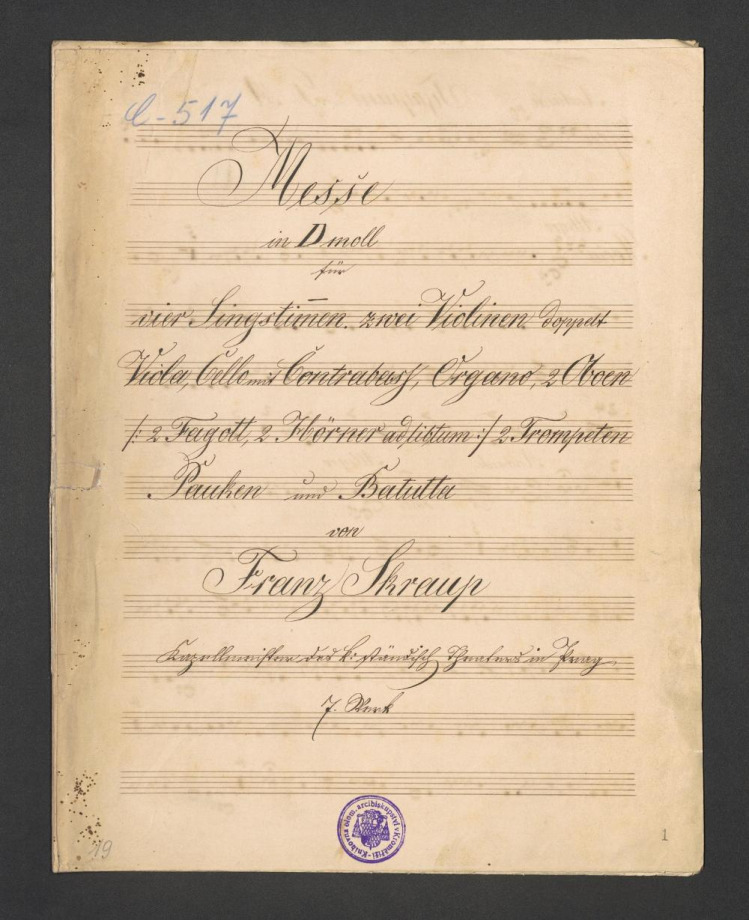 C-517
Messe
in D moll
für
vier Singstim̅en. zwei Violinen. doppelt
Viola, Cello mit Contrabass, Organo, 2 Oboen
/: 2 Fagott, 2 Hörner ad libitum :/ 2 Trompeten
Pauken und Batutta
von
Franz Skraup
Kapellmeister des k: ständisch Theaters in Prag
7. Werk
Knihovna olom. arcibiskupství v Kroměříži
1
19